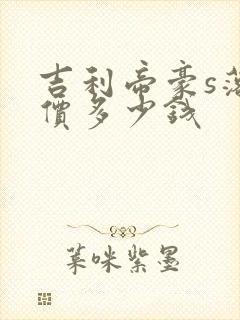 吉利帝豪s落
價多少钱
菜咪紫墨